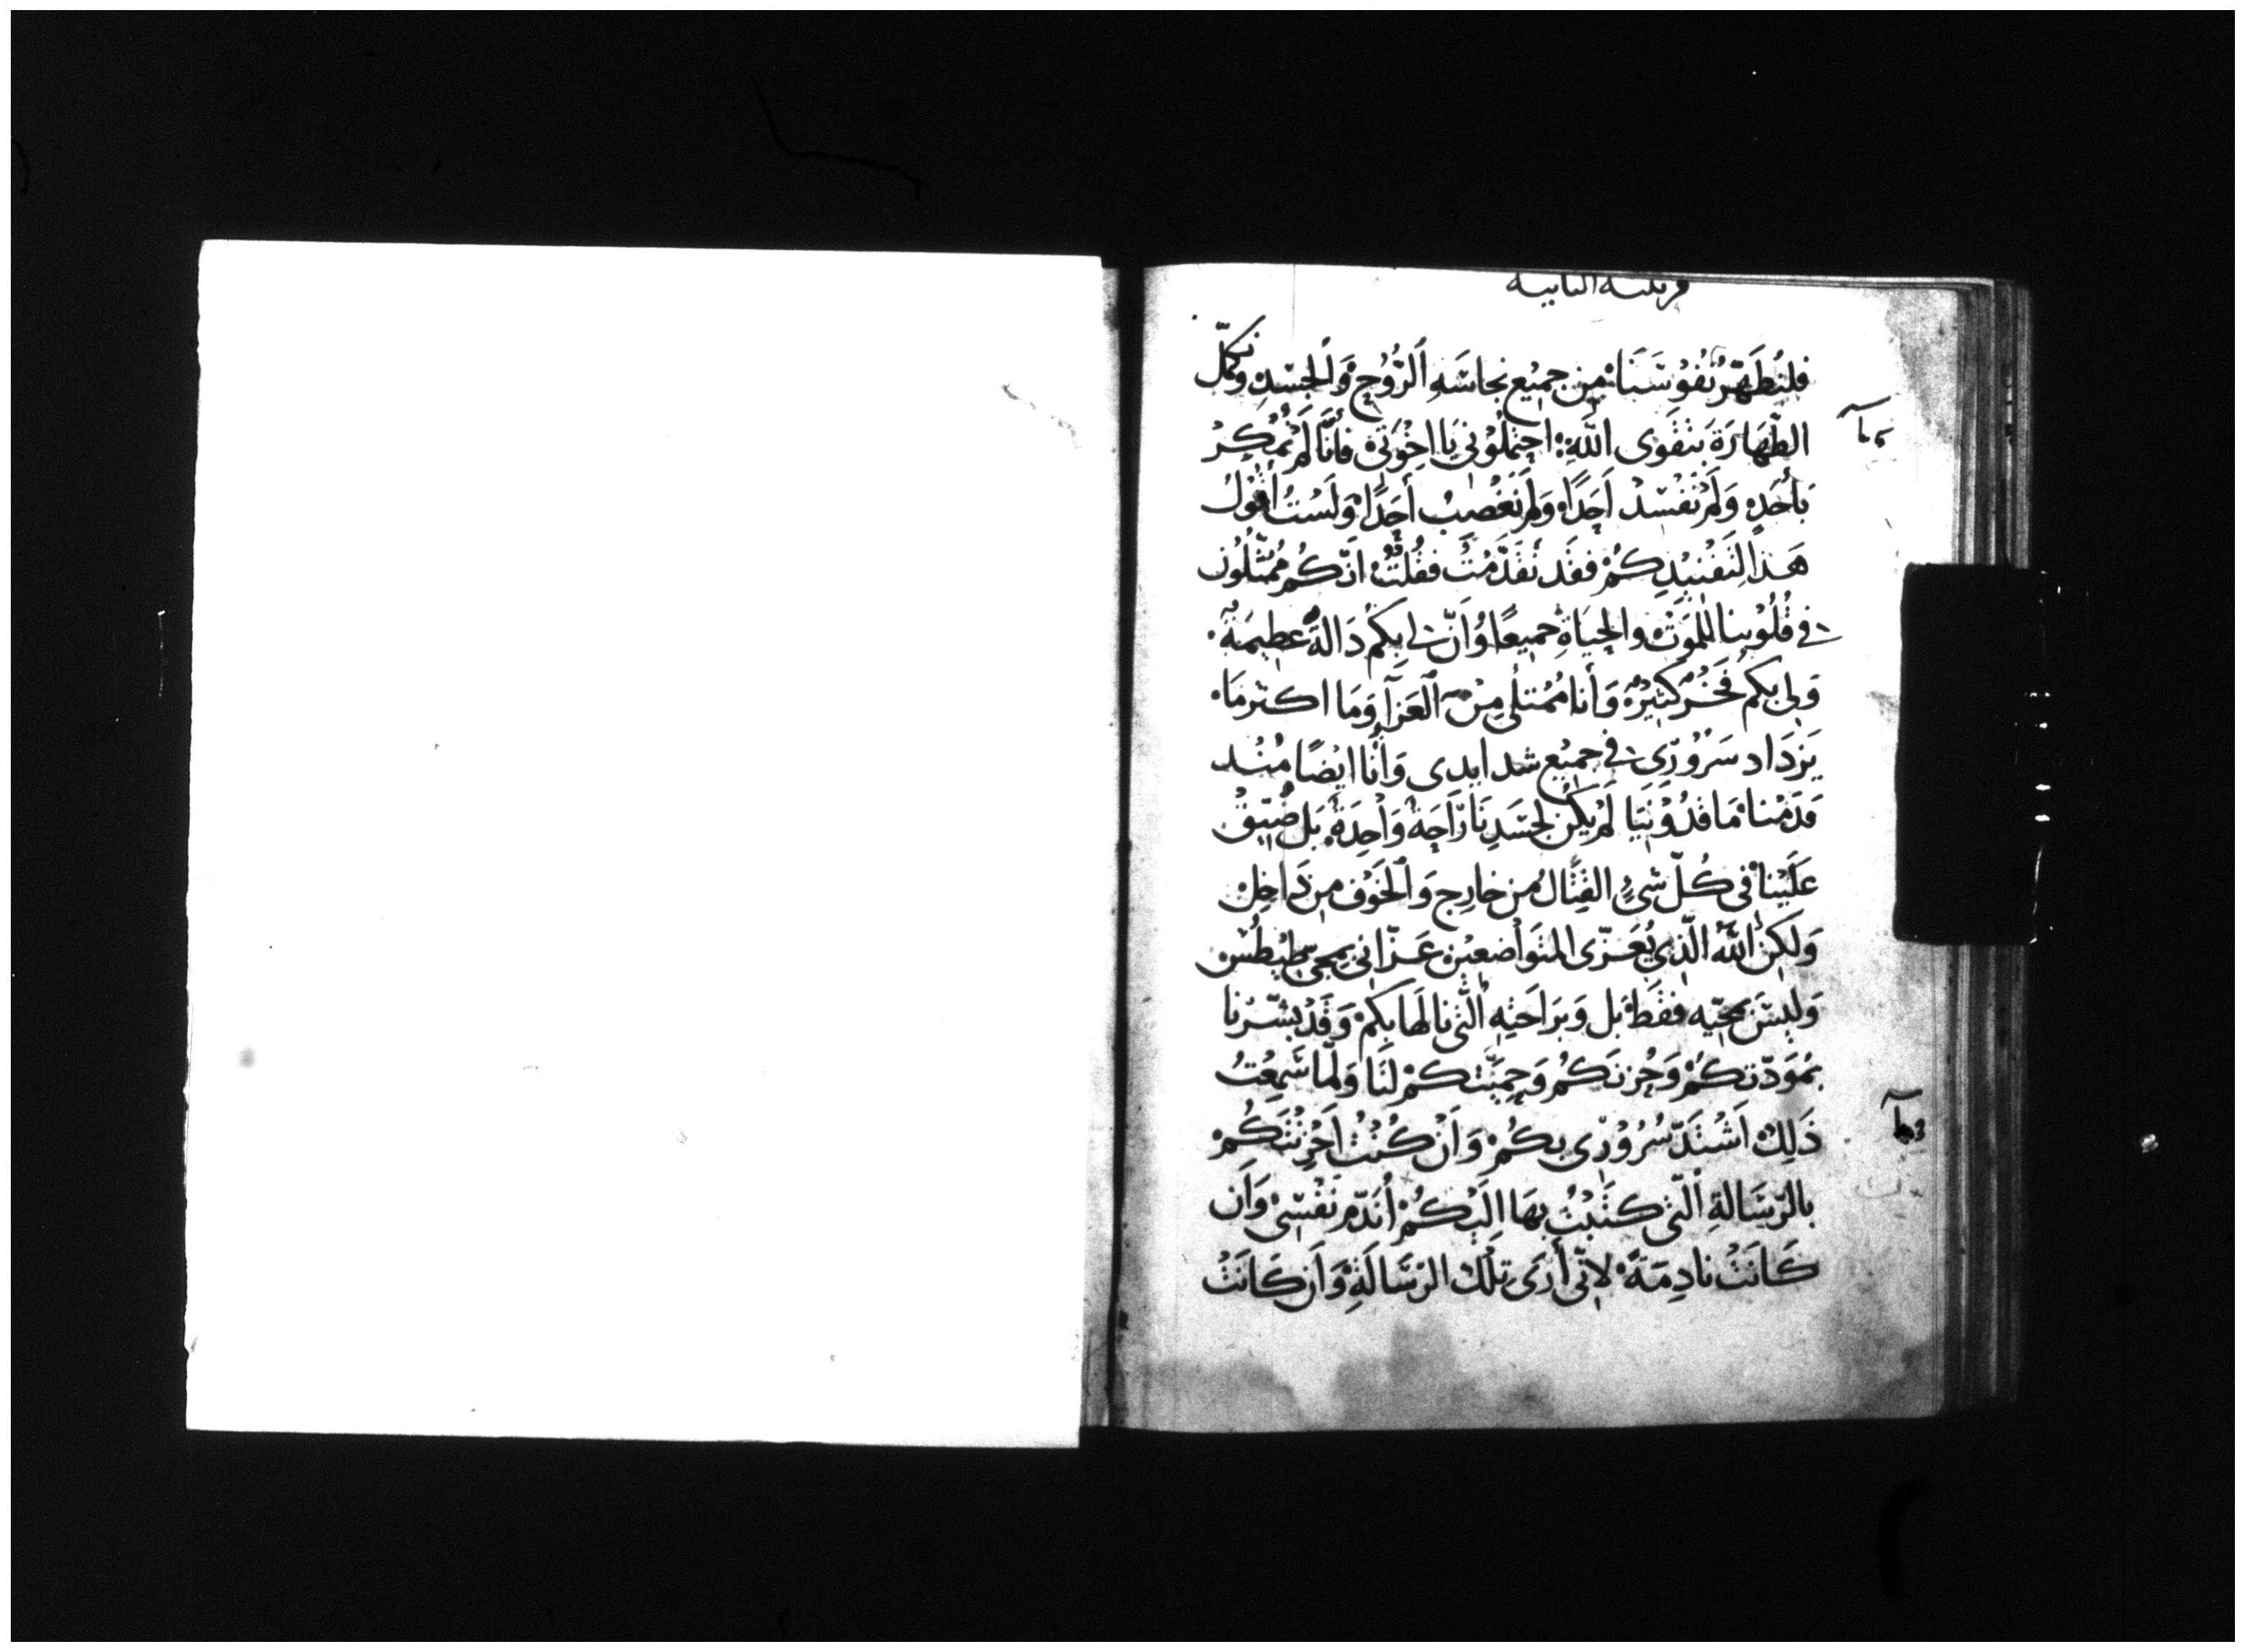 قرنتيه الثانيه
فلنُطَهّرْ نُفُوسَنَا مِن جميْع نجاسَهِ الرُّوُحِ وَالجسَدِ ونكمّل
الطّهَارَةَ بتقَوى اللّهِ: احتملُوْنى يَا اخْوَتى فانّا لَمْ نَمْكِرْ
بَأحَدٍ وَلَمْ نفْسِدْ اَحَدًا وَلَم نغْصِبْ أحَدًا وَلَسْتُ أقُولُ
هَذا لِتَفْنيْدِكُمْ فقَد تقَدَّمْتُ فقُلتُ انّكُم مُمَثّلُون
فى قُلُوْبنا للمَوَت والحيَاةِ جميعًا وَانّ لى بِكم دَالةً عَظيمَةً
وَلى بكم فَخْرٌ كثيْرٌ وَأنا مُمْتلى مِنَ العَزَآ وَمَا اكثرمَا
يَزدَاد سَرُوُرى فى جميْع شدايدى وَأنا ايْضًا مُنْد
قدَمْنا مَاقدُوْنيَا لمْ يكُن لجسَدِنَا رَاحَهُ وَاحِدَهُ بَل ضُيّق
عَلَيْنا فى كُلّ شىْءٍ القِتَالُ من خارِج وَالخَوْف مِن دَاخِل
وَلَكن اللّهُ الّذِى يُعَزّى المتوَاضعيْن عَزّانى بمجى طيْطُسْ
وَليْسَ بمجيّه فقَط بَل وَبرَاحَتِهِ الّتى نالهَا بكم وَقَدْ بَشّرْنا
بموَدّتِكُمْ وَحُزنكُم وَحِميَّتكمْ لنَا وَلمّا سَمِعْتُ
ذَلِكْ اَشْتدَّ سُرُوْرِى بكُمْ وَاَنْ كُنْتُ اَحْزنْتكُمْ
بالرّسَالةِ الّتى كتَبْتُ بهَا الَيْكُمْ اُنَدّم نَفْسِىْ وَاَن
كَانَتْ نادِمَةً لانّى أرَى تِلْكْ الرّسَالَةِ وَاَن كَانَتْ